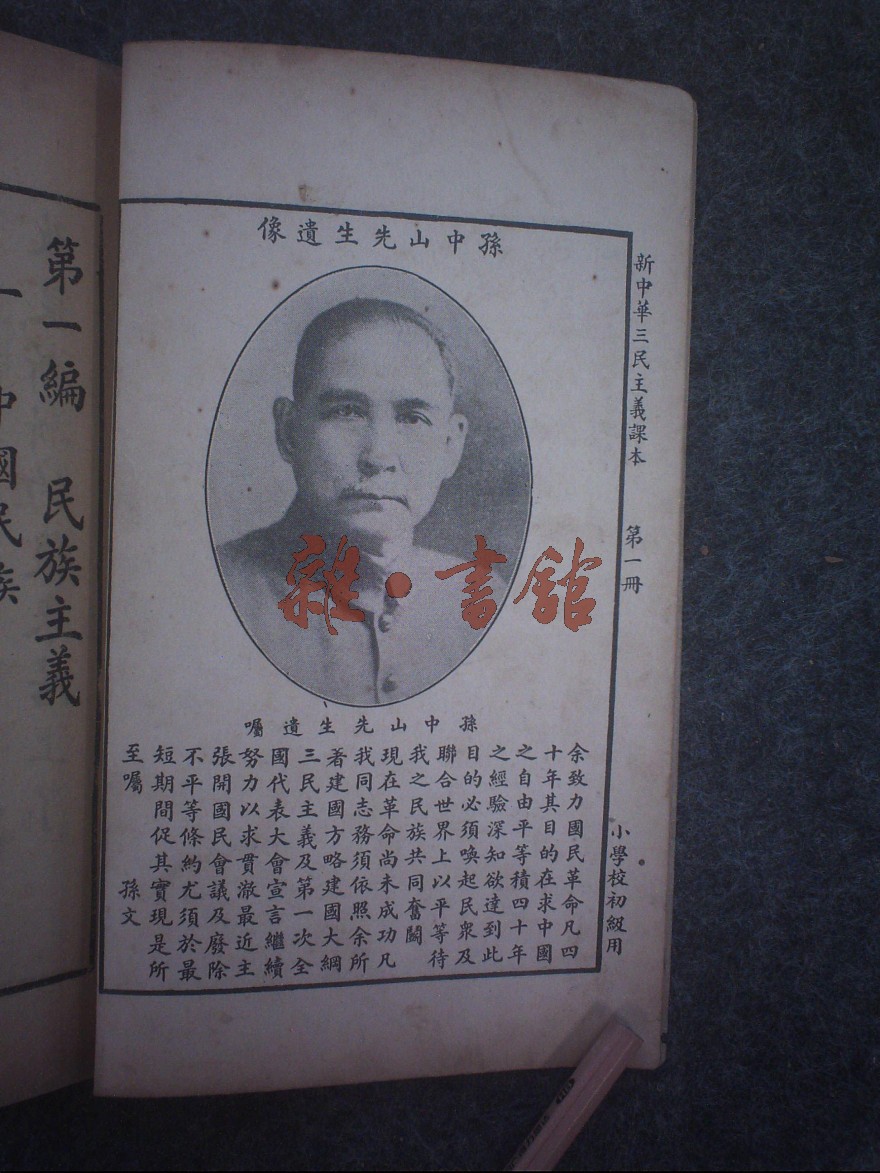 新中華三民主義課本 第一冊
小學校初級用
孫中山先生遺像
雜·書館
孫中山先生遺囑
余致力國民革命凡四
十年其目的在求中國
之自由平等積四十年
之經驗深知欲達到此
目的必須喚起民眾及
聯合世界上以平等待
我之民族共同奮鬭
現在革命尚未成功凡
我同志務須依照余所
著建國方略建國大綱
三民主義及第一次全
國代表大會宣言繼續
努力以求貫澈最近主
張開國民會議及廢除
不平等條約尤須於最
短期間促其實現是所
至囑 孫文
第一編 民族主義
一 中國民族